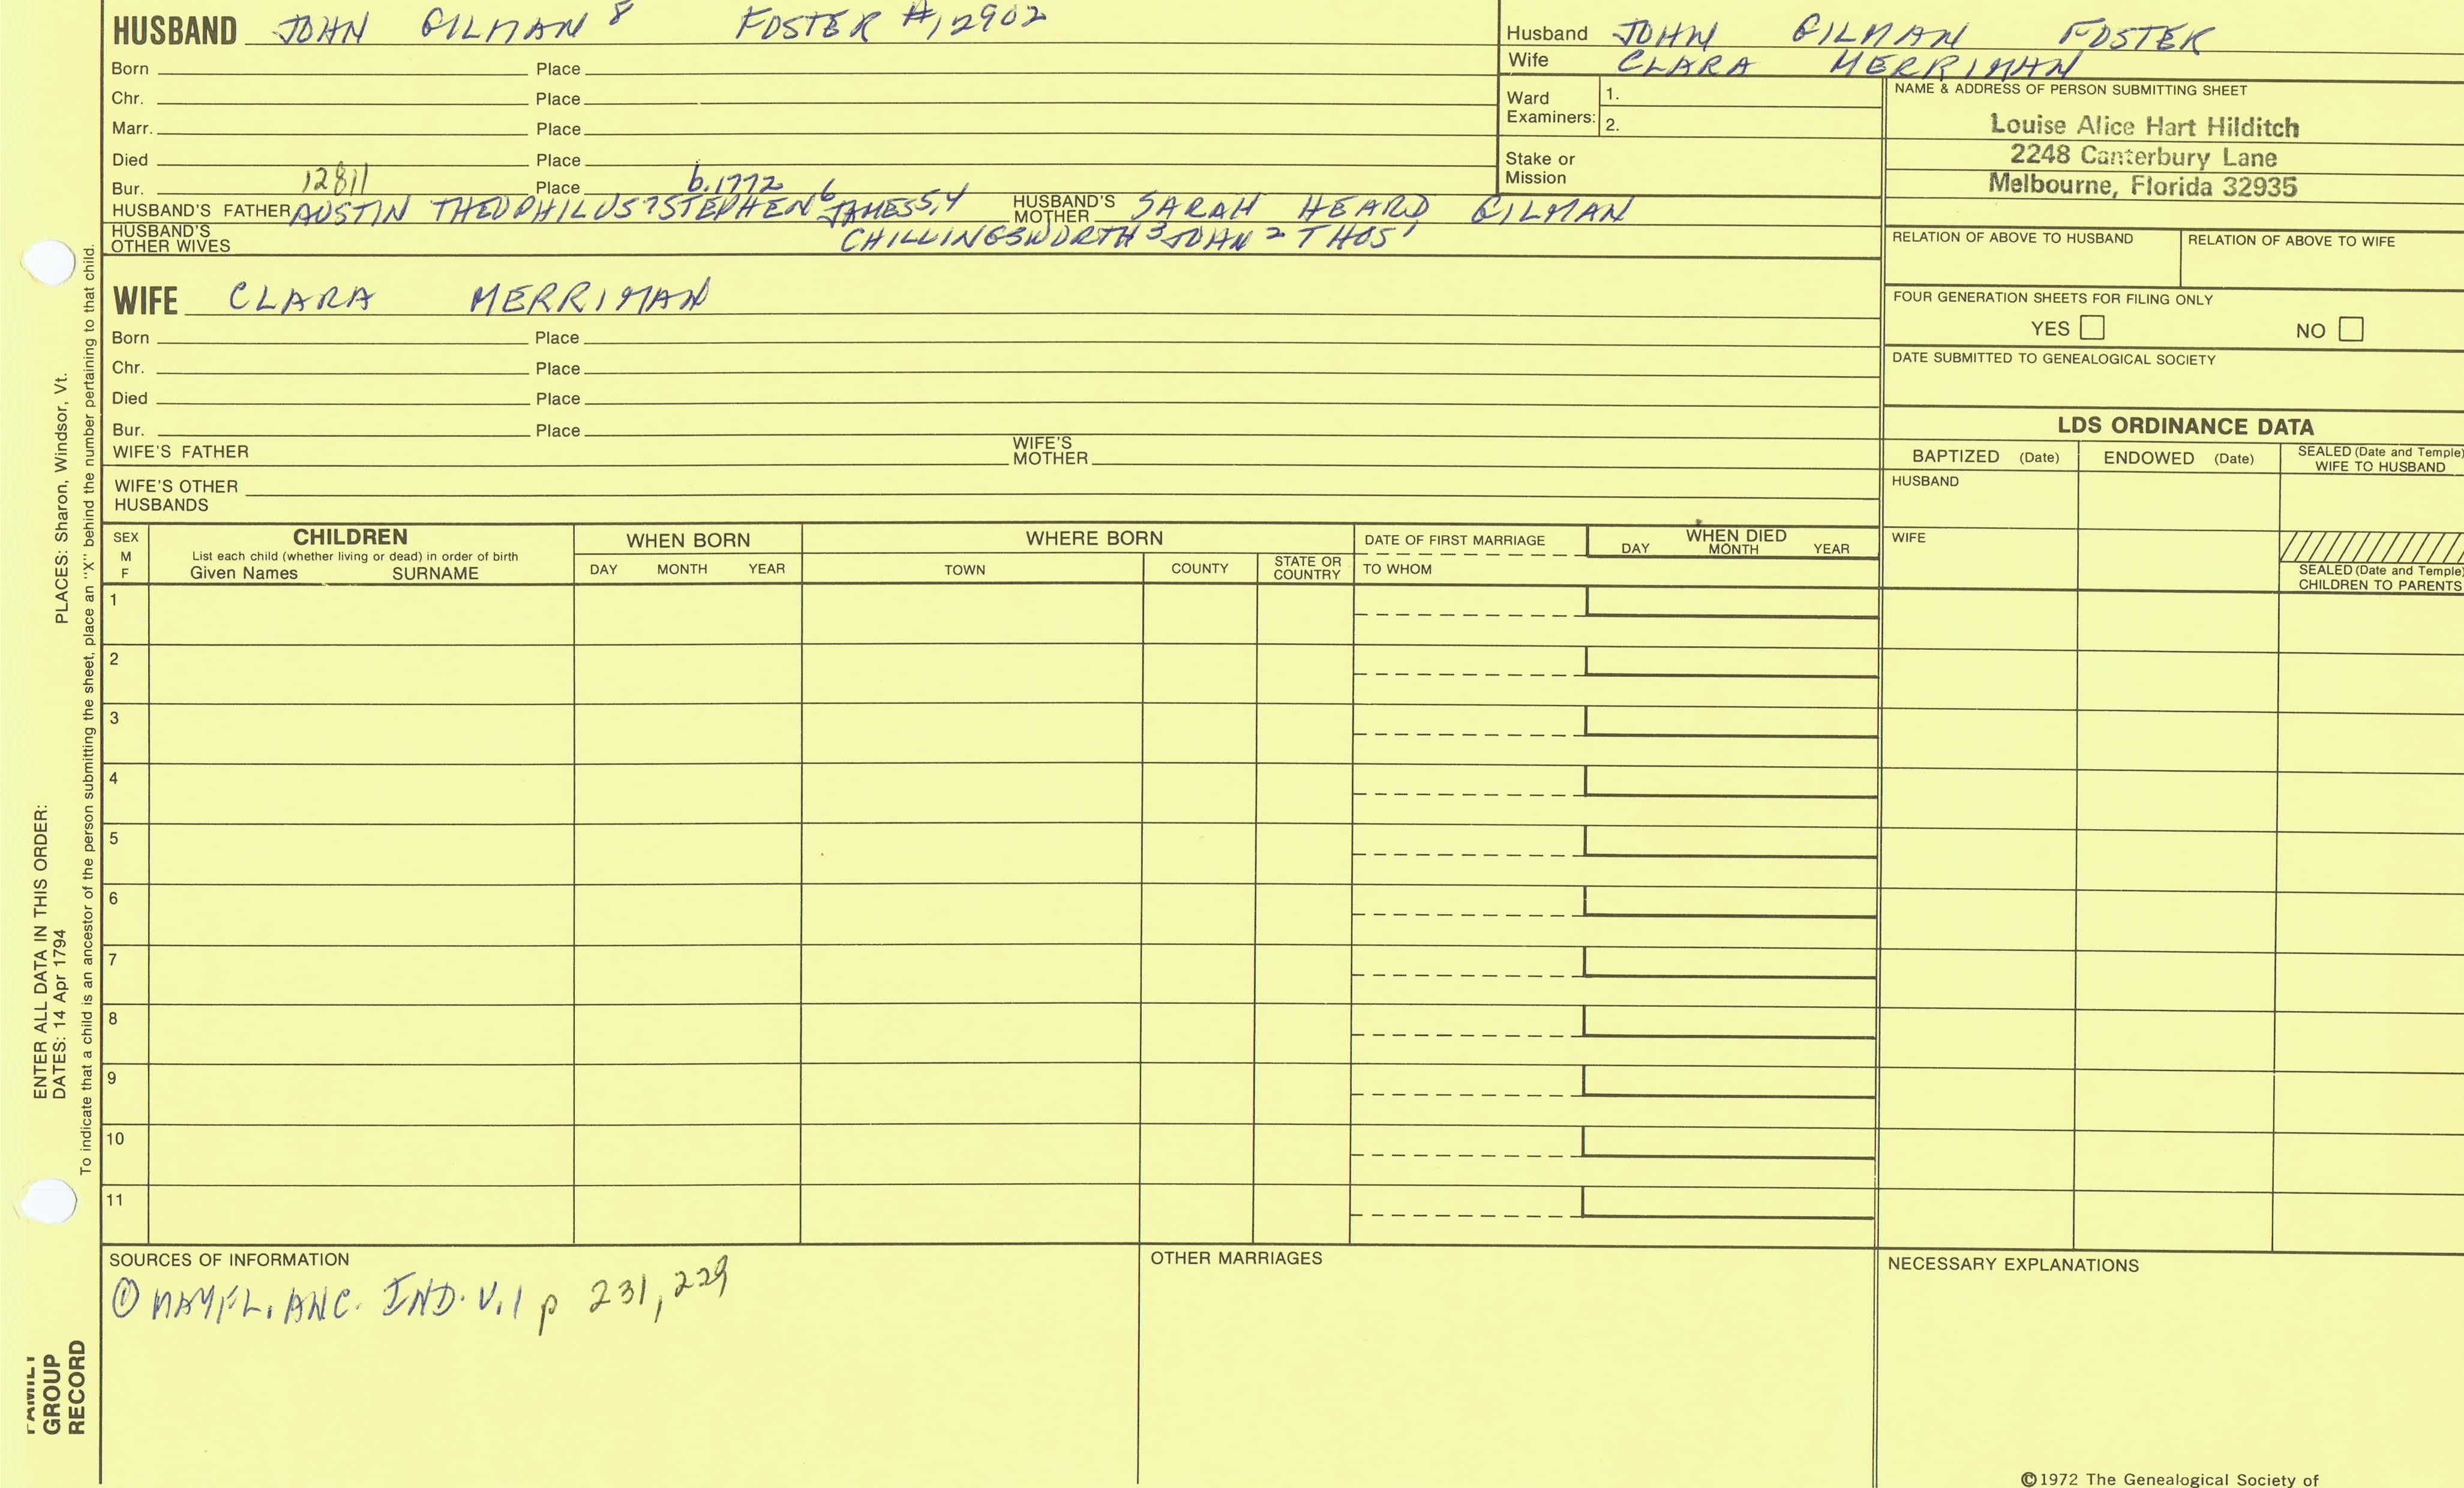 HUSBAND JOHN GILMAN 8 FOSTER #12902
Born Place
Chr. Place
Marr. Place
Died Place
Bur. 12811 Place b.1772
HUSBAND'S FATHER AUSTIN THEOPHILUS 7 STEPHEN 6 JAMES 5,4 HUSBAND'S MOTHER SARAH HEARD GILMAN
HUSBAND'S OTHER WIVES CHILLINGSWORTH 3 JOHN 2 THOS 1
Husband JOHN GILMAN FOSTER
Wife CLARA MERRIMAN
Ward Examiners: 1.
2.
Stake or Mission
NAME & ADDRESS OF PERSON SUBMITTING SHEET
Louise Alice Hart Hilditch
2248 Canterbury Lane
Melbourne, Florida 32935
RELATION OF ABOVE TO HUSBAND RELATION OF ABOVE TO WIFE
FOUR GENERATION SHEETS FOR FILING ONLY
YES NO
DATE SUBMITTED TO GENEALOGICAL SOCIETY
WIFE CLARA MERRIMAN
Born Place
Chr. Place
Died Place
Bur. Place
WIFE'S FATHER WIFE'S MOTHER
WIFE'S OTHER HUSBANDS
LDS ORDINANCE DATA
BAPTIZED (Date) ENDOWED (Date) SEALED (Date and Temple) WIFE TO HUSBAND
HUSBAND
WIFE
SEALED (Date and Temple)
CHILDREN TO PARENTS
SEX M F
CHILDREN
List each child (whether living or dead) in order of birth
Given Names SURNAME
WHEN BORN
DAY MONTH YEAR
WHERE BORN
TOWN COUNTY STATE OR COUNTRY
DATE OF FIRST MARRIAGE
TO WHOM
WHEN DIED
DAY MONTH YEAR
1
2
3
4
5
6
7
8
9
10
11
SOURCES OF INFORMATION
① MAYFL. ANC. IND. V.1 p 231, 229
OTHER MARRIAGES
NECESSARY EXPLANATIONS
©1972 The Genealogical Society of
ENTER ALL DATA IN THIS ORDER:
DATES: 14 Apr 1794 PLACES: Sharon, Windsor, Vt.
To indicate that a child is an ancestor of the person submitting the sheet, place an "X" behind the number pertaining to that child.
FAMILY
GROUP
RECORD